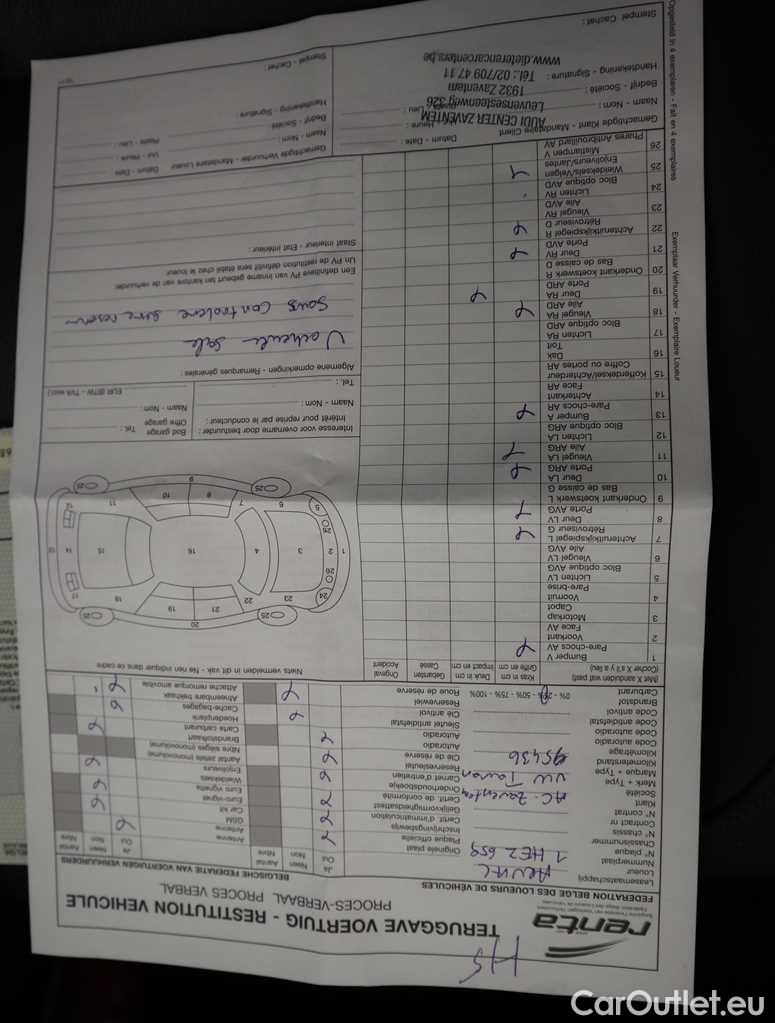 HS
renta
Belgische Federatie van Voertuigen Verhuurders
Fédération Belge des Loueurs de Véhicules
TERUGGAVE VOERTUIG - RESTITUTION VEHICULE
PROCES-VERBAAL PROCES VERBAL
FEDERATION BELGE DES LOUEURS DE VÉHICULES
BELGISCHE FEDERATIE VAN VOERTUIGEN VERHUURDERS
Leasemaatschappij
Loueur
Nummerplaat
N° plaque 1 HEZ 659
Chassisnummer
N° chassis
Contract nr
N° contrat
Klant
Société A.C. Zaventem
Merk + Type
Marque + Type VW Touran
Kilometerstand
Kilométrage 95436
Code autoradio
Code autoradio
Code antidiefstal
Code antivol
Brandstof
Carburant 0% - 25% - 50% - 75% - 100%
Ja Neen Aantal
Oui Non Nbre
Originele plaat
Plaque officielle
Inschrijvingsbewijs
Certif. d'immatriculation
Gelijkvormigheidsattest
Certif. de conformité
Onderhoudsboekje
Carnet d'entretien
Reservesleutel
Clé de réserve
Autoradio
Autoradio
Sleutel antidiefstal
Clé antivol
Reservewiel
Roue de réserve
Ja Neen Aantal
Oui Non Nbre
Antenne
Antenne
GSM
Car kit
Euro-vignet
Euro vignette
Wieldeksels
Enjoliveurs
Aantal zetels (monovolume)
Nbre sièges (monovolume)
Brandstofkaart
Carte carburant
Hoedenplank
Cache-bagages
Afneembare trekhaak
Attache remorque amovible
(Met X aanduiden wat past)
(Cocher X s'il y a lieu)
Kras in cm
Griffe en cm
Deuk in cm
Impact en cm
Gebarsten
Cassé
Original
Accident
Niets vermelden in dit vak - Ne rien indiquer dans ce cadre
1 Bumper V
Pare-chocs AV
2 Voorkant
Face AV
3 Motorkap
Capot
4 Voorruit
Pare-brise
5 Lichten LV
Bloc optique AVG
6 Vleugel LV
Aile AVG
7 Achteruitkijkspiegel L
Rétroviseur G
8 Deur LV
Porte AVG
9 Onderkant koetswerk L
Bas de caisse G
10 Deur LA
Porte ARG
11 Vleugel LA
Aile ARG
12 Lichten LA
Bloc optique ARG
13 Bumper A
Pare-chocs AR
14 Achterkant
Face AR
15 Kofferdeksel/Achterdeur
Coffre ou portes AR
16 Dak
Toit
17 Lichten RA
Bloc optique ARD
18 Vleugel RA
Aile ARD
19 Deur RA
Porte ARD
20 Onderkant koetswerk R
Bas de caisse D
21 Deur RV
Porte AVD
22 Achteruitkijkspiegel R
Rétroviseur D
23 Vleugel RV
Aile AVD
24 Lichten RV
Bloc optique AVD
25 Wieldeksels/Velgen
Enjoliveurs/Jantes
26 Mistlampen V
Phares Antibrouillard AV
Interesse voor overname door bestuurder :
Intérêt pour reprise par le conducteur :
Naam - Nom :
Tel. :
Bod garage
Offre garage
Tel. :
Naam - Nom :
EUR (BTW - TVA excl.)
Algemene opmerkingen - Remarques générales :
sale
sous
Een definitieve PV van inname gebeurt ten kantore van de verhuurder
Un PV de restitution définitif sera établi chez le loueur
Staat interieur - Etat intérieur :
Gemachtigde Klant - Mandataire Client
Datum - Date :
Uur - Heure :
Plaats - Lieu :
Naam - Nom :
Bedrijf - Société :
Handtekening - Signature :
Stempel Cachet :
AUDI CENTER ZAVENTEM
Leuvensesteenweg 326
1932 Zaventem
Tél.: 02/709 47 11
www.dieterencarcenters.be
Gemachtigde Verhuurder - Mandataire Loueur
Datum - Date
Uur - Heure
Plaats - Lieu
Naam - Nom :
Bedrijf - Société
Handtekening - Signature
Stempel - Cachet :
Opgesteld in 4 exemplaren - Fait en 4 exemplaires
Exemplaar Verhuurder - Exemplaire Loueur
CarOutlet.eu